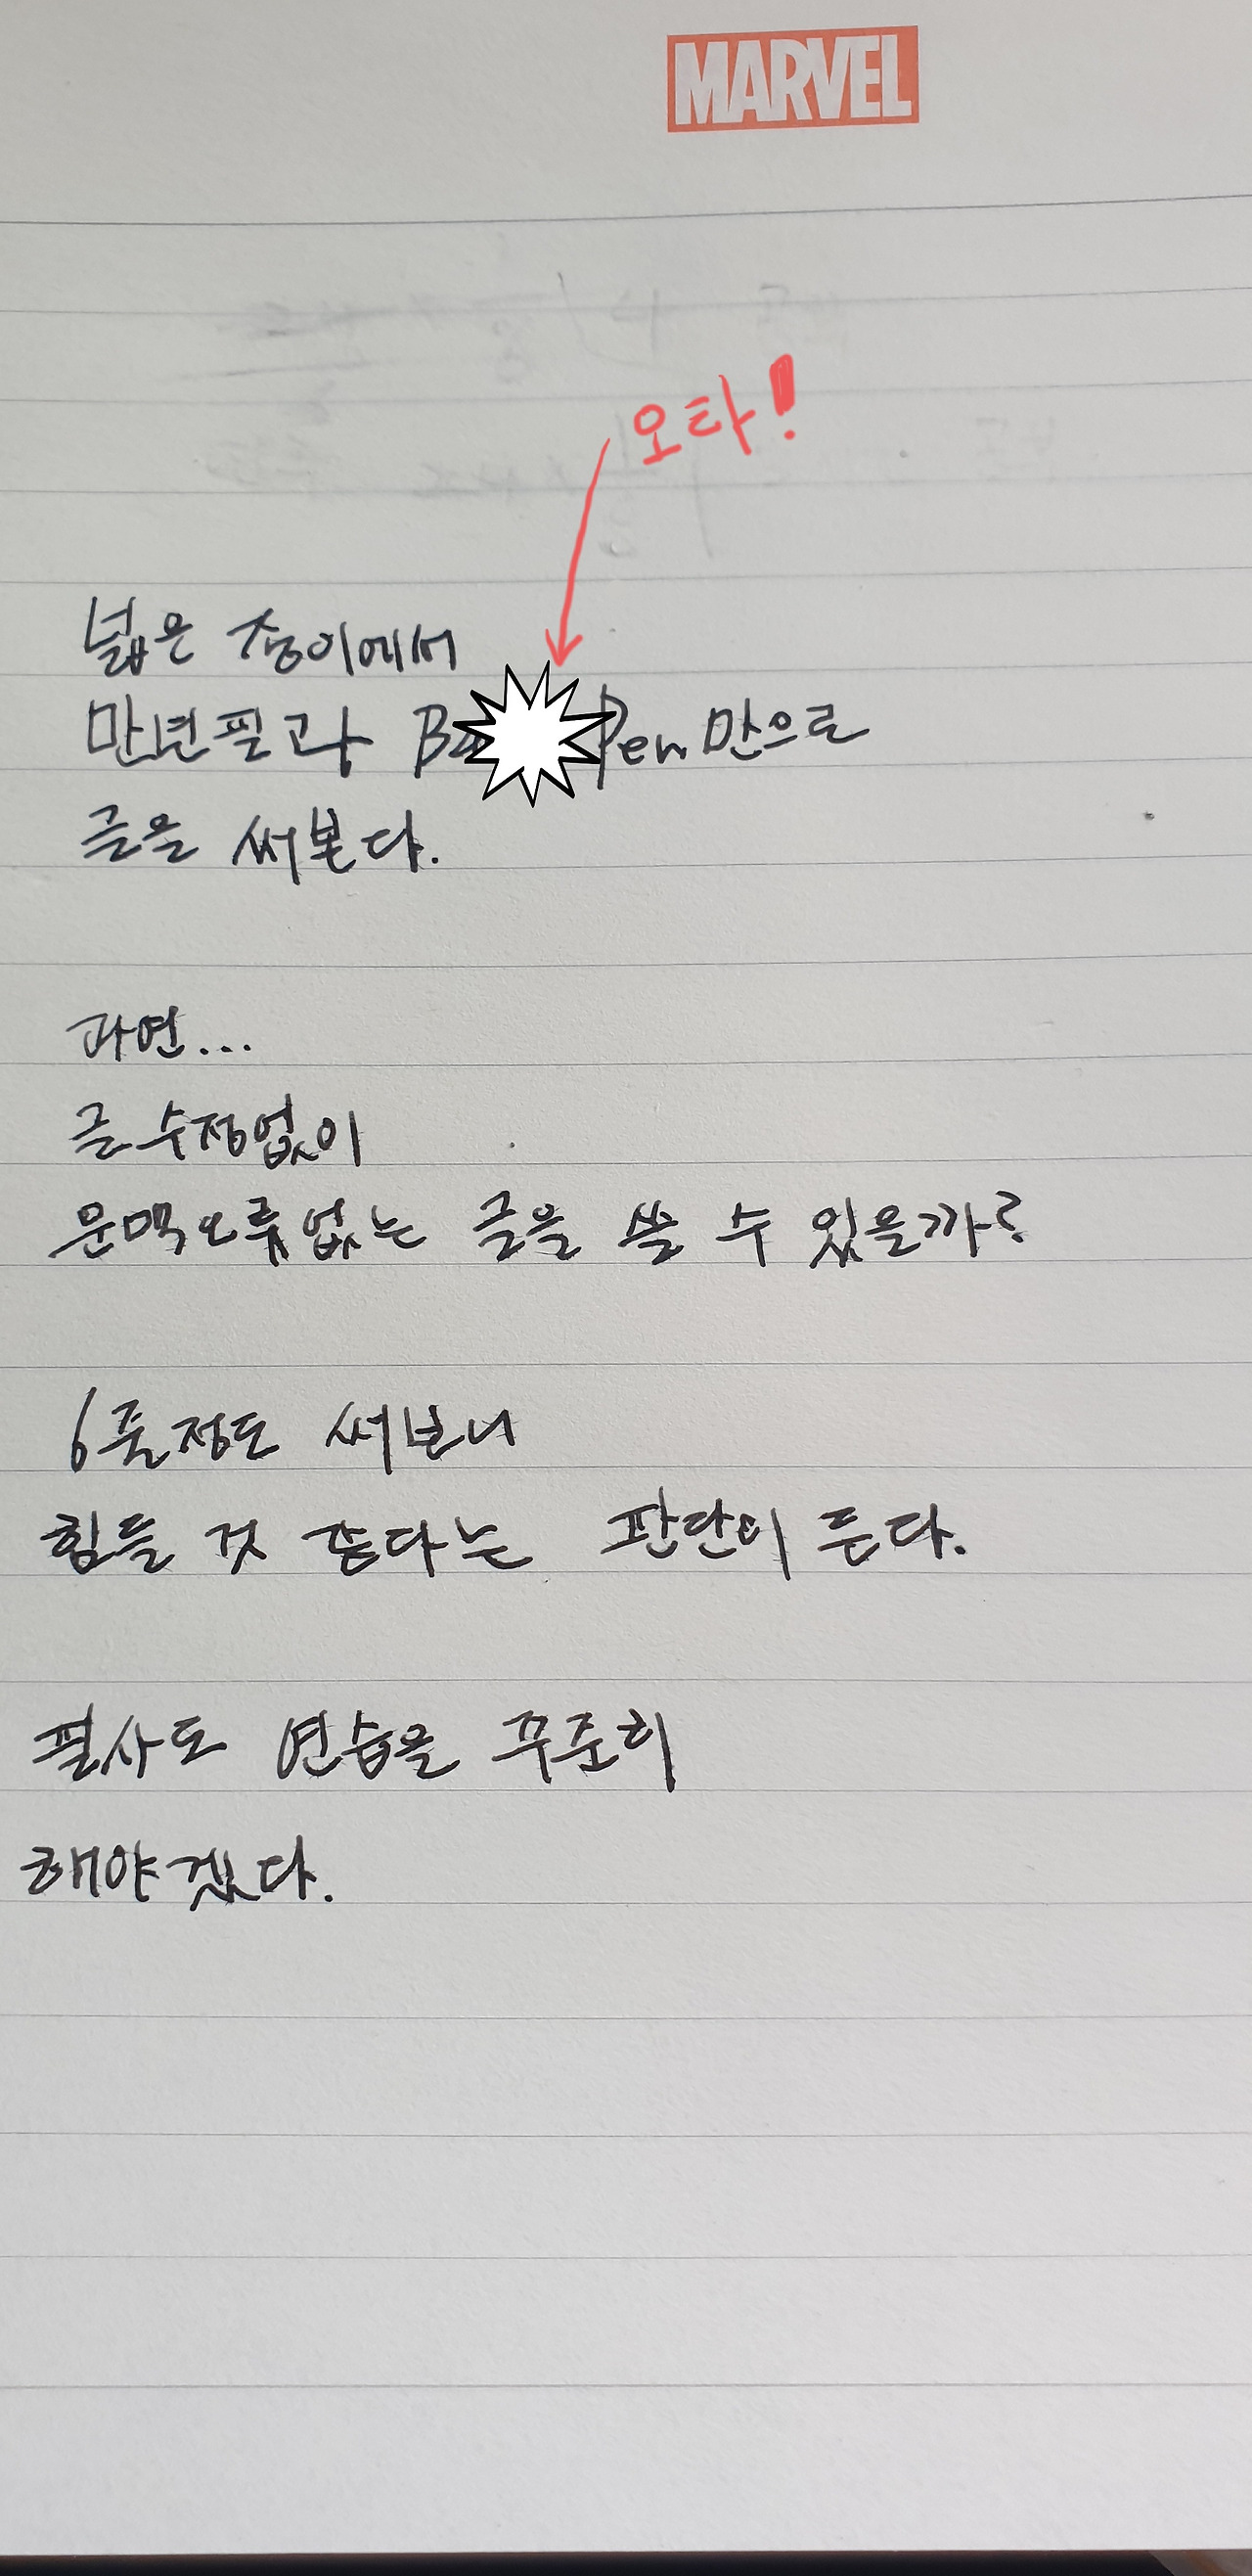 MARVEL
오타!
넓은 종이에서
만년필과 Ba Pen 만으로
글을 써본다.
과연...
글 수정없이
문맥오류없는 글을 쓸 수 있을까?
6줄정도 써보니
힘들 것 같다는 판단이 든다.
필사도 연습을 꾸준히
해야겠다.